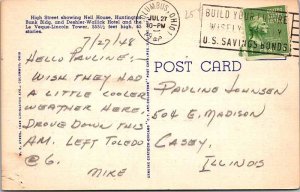 High Street showing Neil House, Huntington
Bank Bldg., and Deshler-Wallick Hotel and the
Le Veque-Lincoln Tower, 555½ feet high, 
stories.
COLUMBUS, OHIO
JUL 27
BUILD YOUR FUTURE
WISELY
U.S. SAVINGS BONDS
7/27/48
HELLO PAULINE:—
WISH THEY HAD
A LITTLE COOLER
WEATHER HERE.
DROVE DOWN THIS
AM. LEFT TOLEDO
@ 6.
MIKE
POST CARD
PAULINE JOHNSEN
504 E. MADISON
CASEY,
ILLINOIS